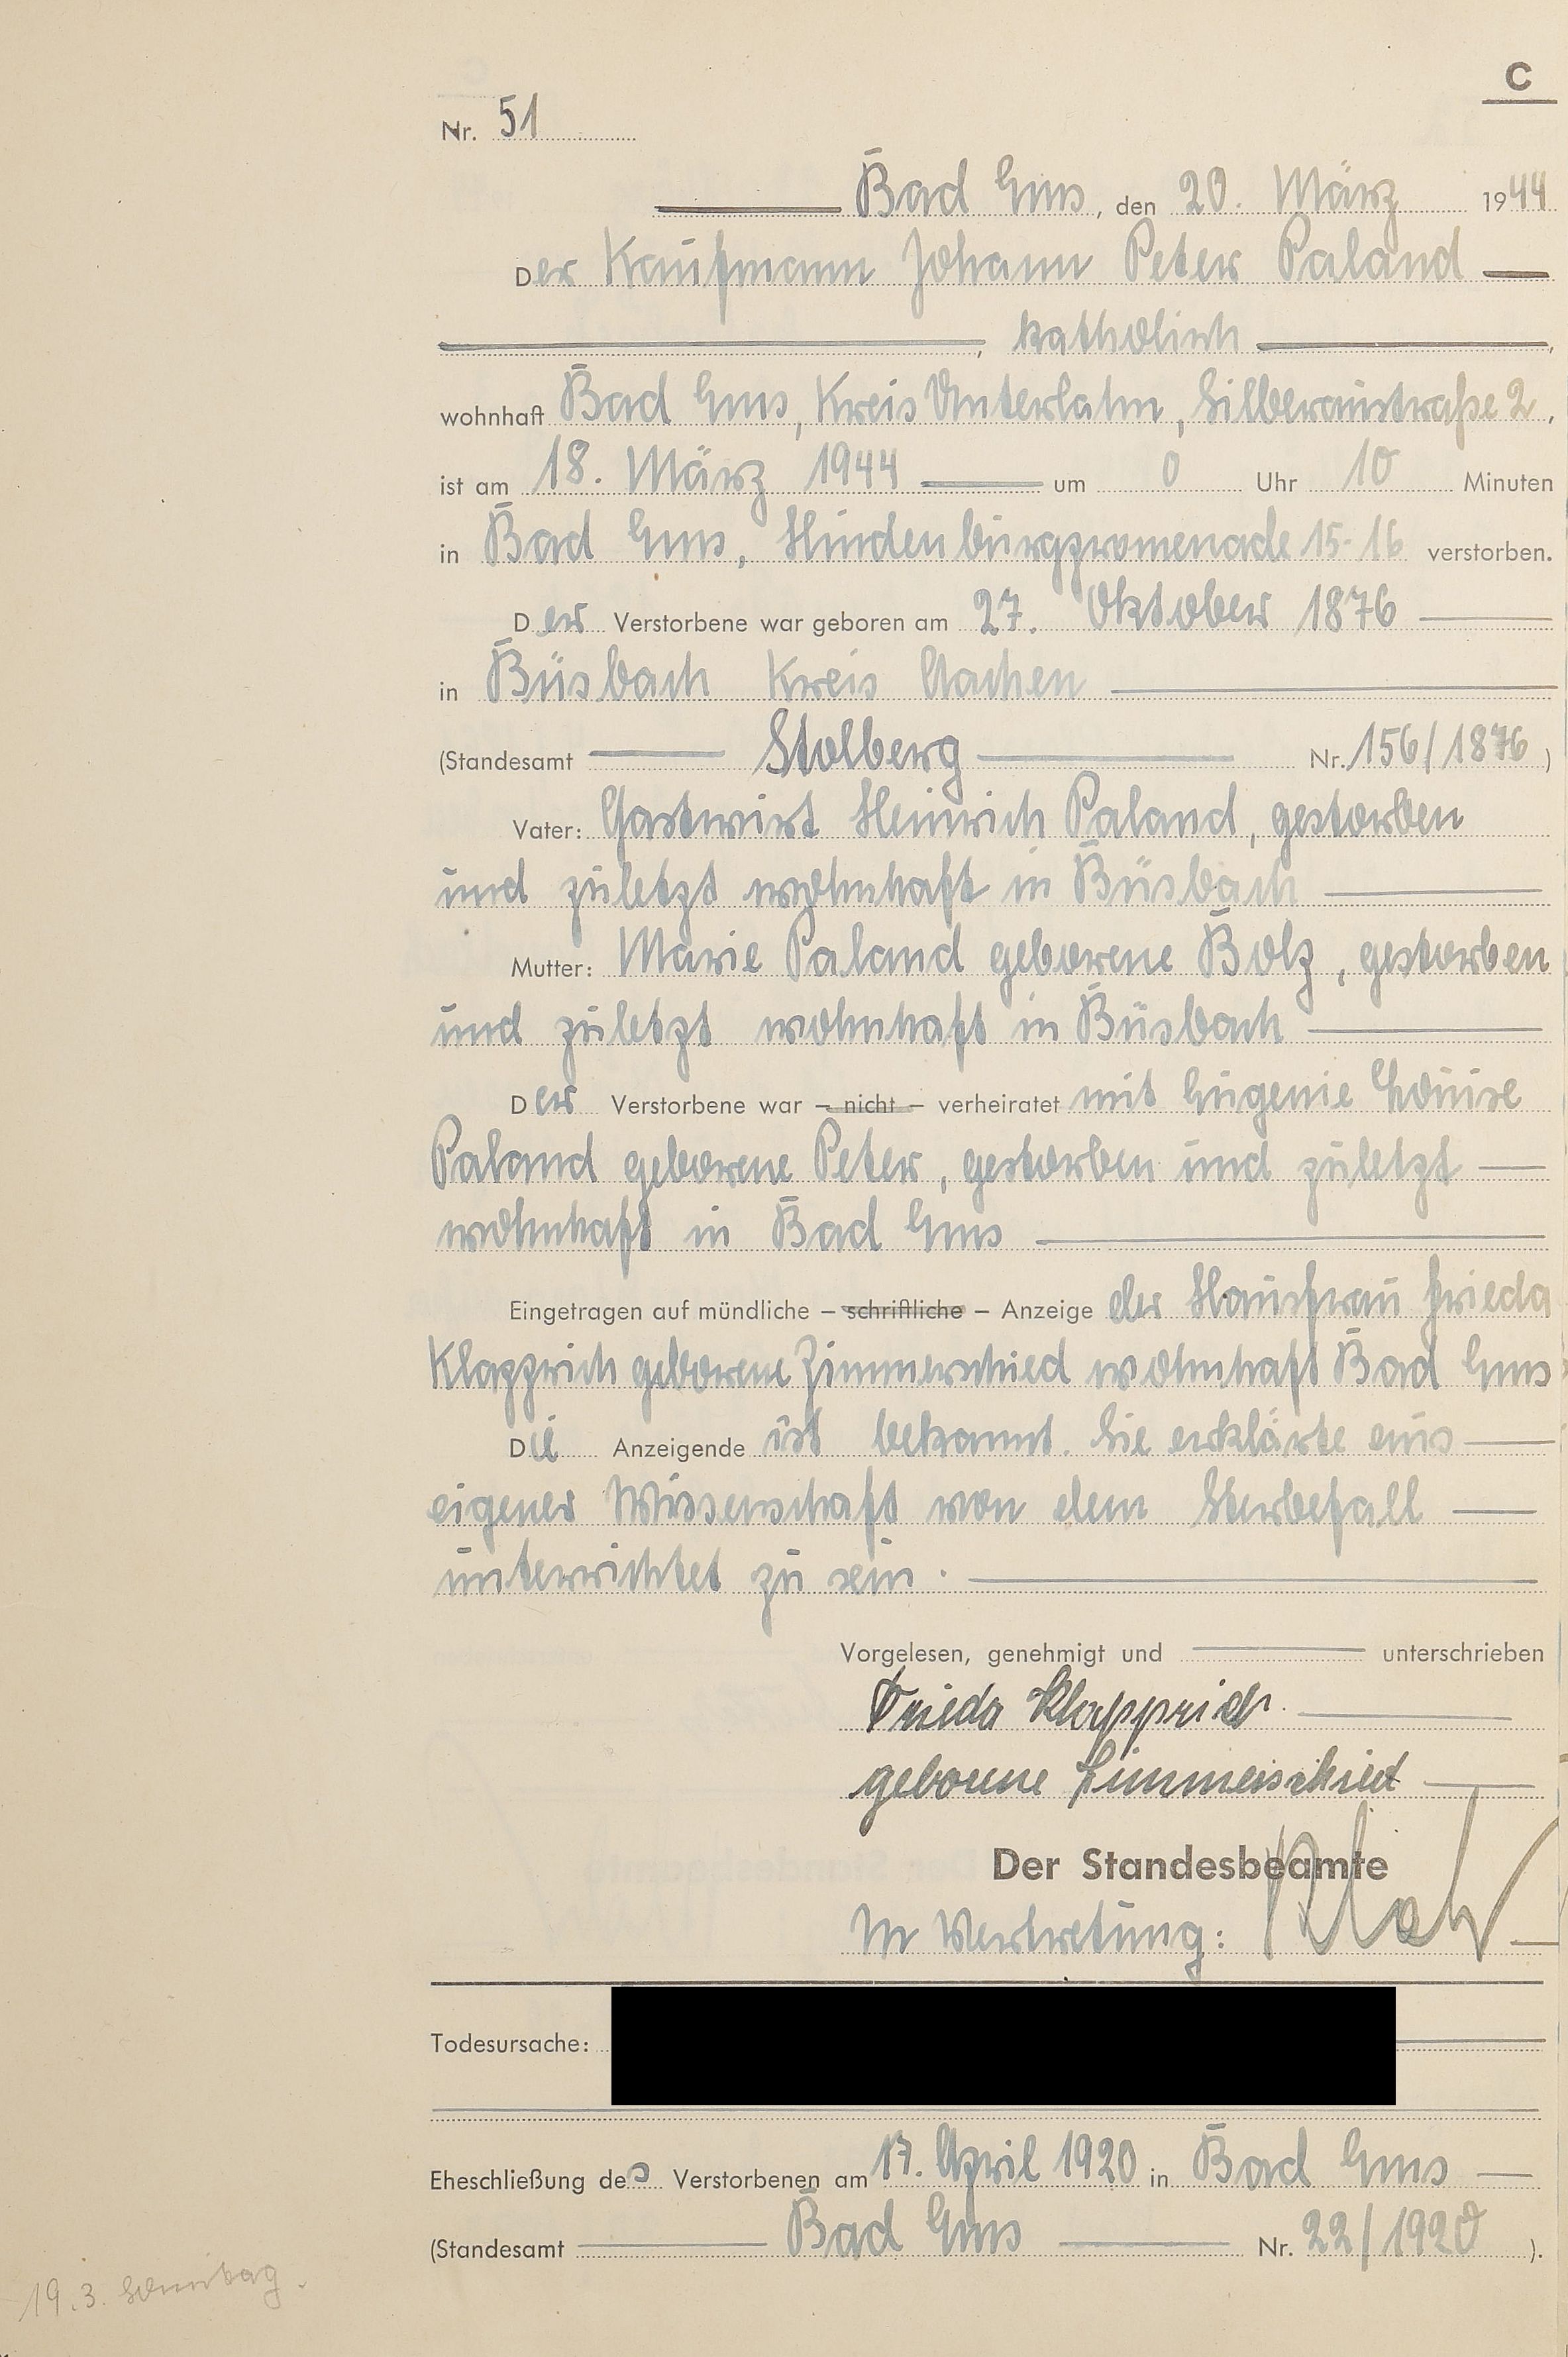 C
Nr. 51
Bad Ems, den 20. März 1944
Der Kaufmann Johann Peter Paland
, katholisch ,
wohnhaft Bad Ems, Kreis Unterlahn, Silberaustraße 2,
ist am 18. März 1944 um 0 Uhr 10 Minuten
in Bad Ems, Hindenburgpromenade 15-16 verstorben.
Der Verstorbene war geboren am 27. Oktober 1876
in Büsbach Kreis Aachen
(Standesamt Stolberg Nr. 156/1876)
Vater: Gastwirt Heinrich Paland, gestorben
und zuletzt wohnhaft in Büsbach
Mutter: Marie Paland geborene Bolz, gestorben
und zuletzt wohnhaft in Büsbach
Der Verstorbene war – nicht – verheiratet mit Eugenie Louise
Paland geborene Peter, gestorben und zuletzt
wohnhaft in Bad Ems
Eingetragen auf mündliche – schriftliche – Anzeige der Hausfrau Frieda
Klapprich geborene Zimmerschied wohnhaft Bad Ems
Die Anzeigende ist bekannt. Sie erklärte aus
eigener Wissenschaft von dem Sterbefall
unterrichtet zu sein.
Vorgelesen, genehmigt und unterschrieben
Frieda Klapprich.
geborene Zimmerschied
Der Standesbeamte
In Vertretung:
Todesursache:
Eheschließung des Verstorbenen am 17. April 1920 in Bad Ems
(Standesamt Bad Ems Nr. 22/1920).
19.3. Sonntag.